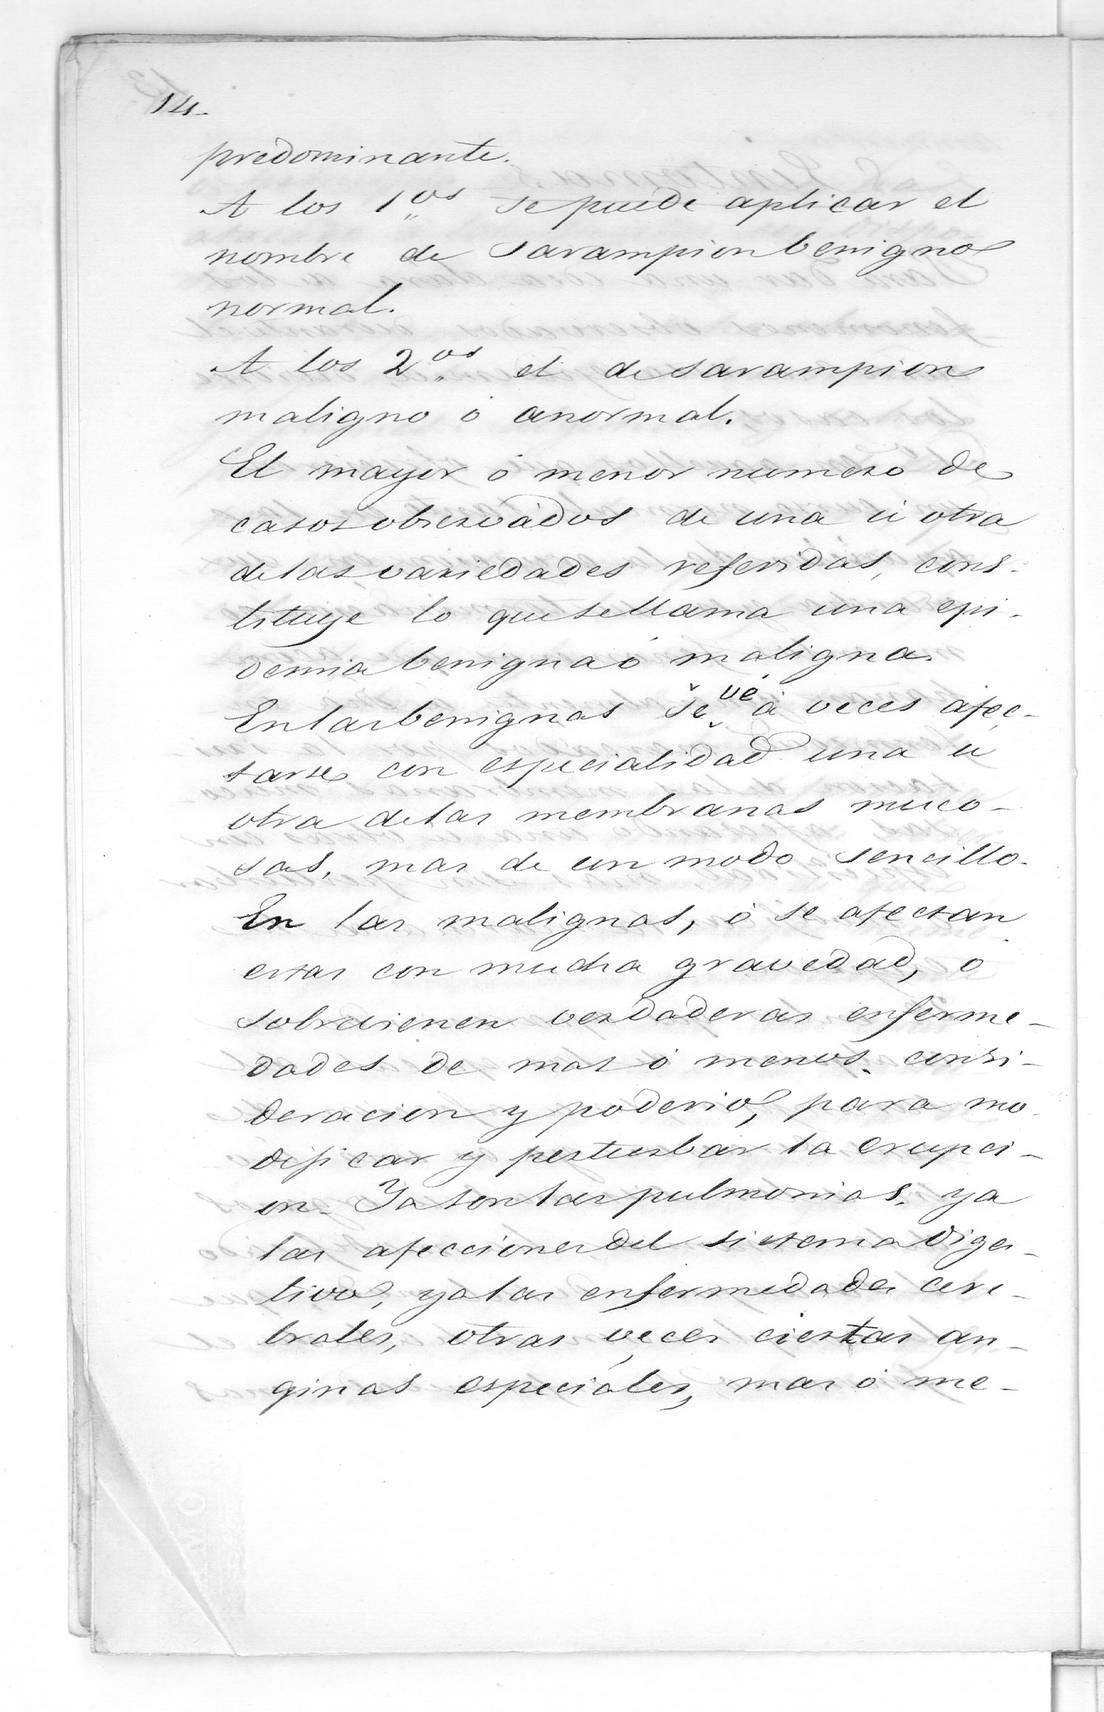 14.
predominante.
A los 1.os se puede aplicar el
nombre de sarampion benigno
normal.
A los 2.os el de sarampion
maligno ó anormal.
El mayor ó menor numero de
casos observados de una ú otra
de las variedades referidas, cons-
tituye lo que se llama una epi-
demia benigna ó maligna.
En las benignas se vé á veces afec-
tarse con especialidad una ú
otra de las membranas muco-
sas, mas de un modo sencillo.
En las malignas, ó se afectan
estas con mucha gravedad, ó
sobrevienen verdaderas enferme-
dades de mas ó menos consi-
deracion y poderio, para mo-
dificar y perturbar la erupci-
on. Ya son las pulmonias, ya
las afecciones del sistema diges-
tivo, ya las enfermedades cere-
brales, otras veces ciertas an-
ginas especiales, mas ó me-